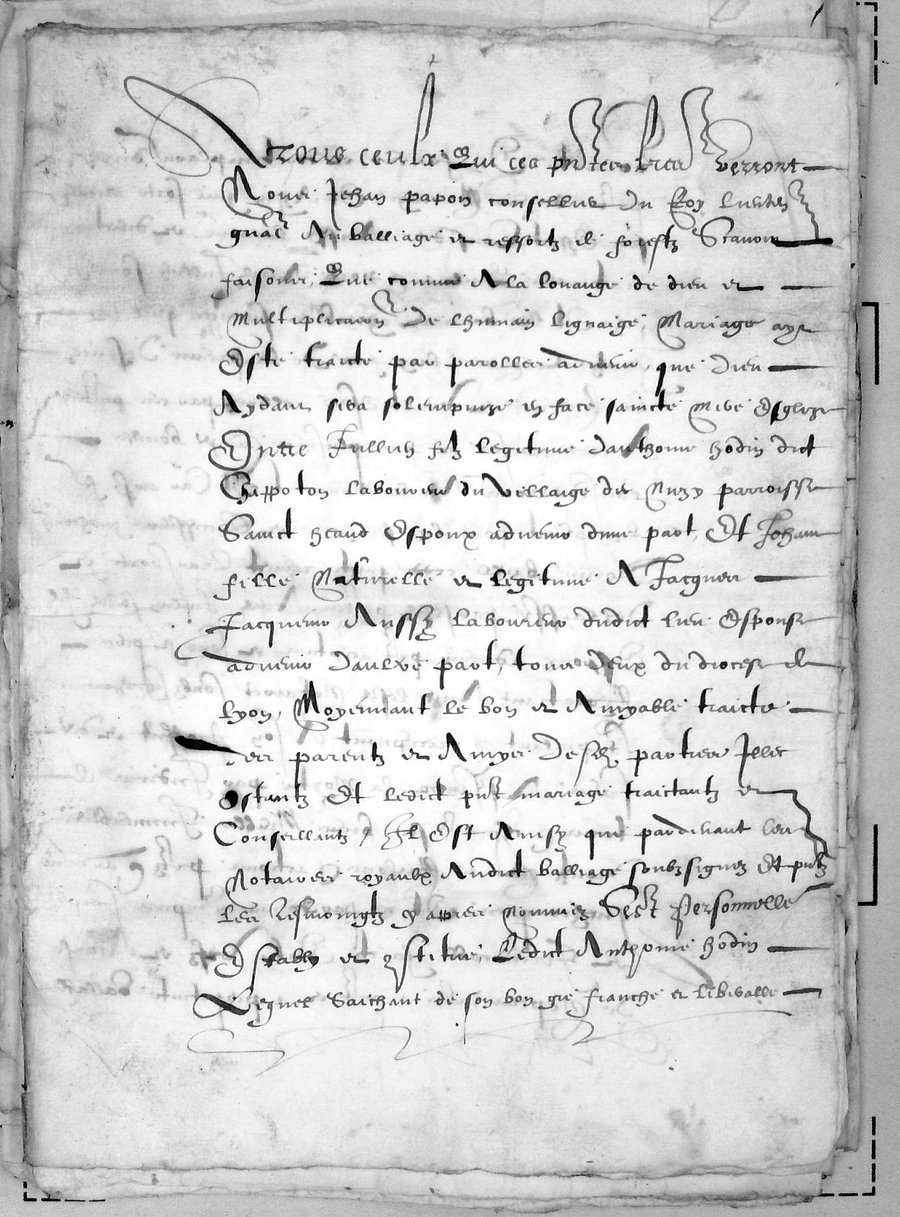 A tous ceulx Qui ces pntes lres verront
Nous Jehan papon conseiller du Roy lieuten
gnal Au balliage et ressortz de forestz Scavoir
faisons, Que comme A la louange de dieu et
Multiplicaon De lhumain lignaige, Mariage aye
Esté traicté par parolles advenir, que Dieu
Aydant sera solempnizé en face saincte mere Esglize
Entre Jullien filz legitime Danthoine hodin dict
Chippoton laboureur du Villaige de Nuzy parroisse
Sainct heand Espoux advenir dune part, Et Jehanne
fille Naturelle et legitime A Jacques
Jacquemo Aussy laboureur dudict lieu Espouse
advenir Daultre part, tous Deux du diocese de
lyon, Moyennant le bon et Amyable traicté
des parentz et Amys Desd parties Illec
Estantz Et ledict pnt mariage traictantz et
Conseillantz, Il Est Ainsy que pardevant les
Notaires royaulx Audict balliage soubzsignez Et pntz
les tesmoingtz cy apres Nommez Sest Personnelle
Estably et constitué, Ledict Anthoine hodin
Lequel Saichant de son bon gré franche et liberalle